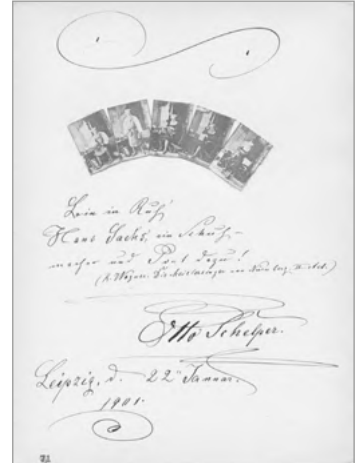 in Ruh'
Hans Sachs, ein Schuh-
macher und Poet dazu!
(R. Wagner. Die Meistersinger von Nürnberg, Act.)
Otto Schelper.
Leipzig, d. 22 Januar.
1901.